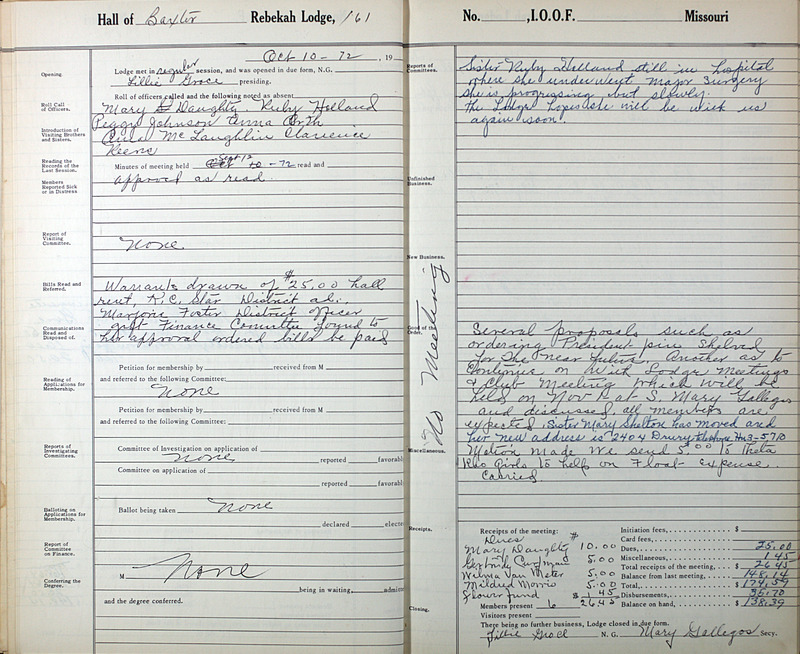 Hall of Baxter Rebekah Lodge, 161
Oct 10-72, 19
Opening
Lodge met in regular session, and was opened in due form, N.G.
Lillie Grace presiding.
Roll Call of Officers.
Roll of officers called and the following noted as absent
Mary Daughty, Ruby Holland
Peggy Johnson Anna Orth
McLaughlin Clarience
Keene
Introduction of Visiting Brothers and Sisters.
Reading the Records of the Last Session.
Minutes of meeting held Sept 12 -72 read and
approved as read
Members Reported Sick or in Distress
Report of Visiting Committee.
None.
Bills Read and Referred.
Warrants drawn of $25.00 hall
rent, K.C. Star District ad.,
Marjorie Foster District Officer
gift Finance Committee found to
her approval ordered bills be paid
Communications Read and Disposed of.
Petition for membership by received from M
and referred to the following Committee:
None
Reading of Applications for Membership.
Petition for membership by received from M
and referred to the following Committee:
Reports of Investigating Committees.
Committee of Investigation on application of
None reported favorabl
Committee on application of
reported favorabl
Balloting on Applications for Membership.
Ballot being taken None
declared electe
Report of Committee on Finance.
Conferring the Degree.
M None
being in waiting, admit
and the degree conferred.
No. , I.O.O.F. Missouri
Reports of Committees.
Sister Ruby Holland still in hospital
where she underweyt major surgery
she is progressing but slowly.
The Lodge hopes she will be with us
again soon!
Unfinished Business.
New Business.
No Meeting
Good of the Order.
Several proposals such as
ordering President pin Shelved
for the near future. Another as to
Continue on with Lodge Meetings
& Club Meeting which will be
held on Nov 1 at S. Mary Gallegos
and discussed, all members are
expected. Sister Mary Shelton has moved and
her new address is 2404 Drury
Miscellaneous.
Motion made we send 5.00 to Theta
Rho Girls to help on Float expense.
Carried
Receipts.
Receipts of the meeting:
Dues
Mary Daughty $10.00
Gertrude 5.00
Wilma Van Meter 5.00
Mildred Morris 5.00
Flower fund $1.45
Members present 6 26.45
Visitors present
Initiation fees, $
Card fees,
Dues, 25.00
Miscellaneous, 1.45
Total receipts of the meeting, $ 26.45
Balance from last meeting, 148.14
Total, $ 174.59
Disbursements, 36.20
Balance on hand, $ 138.39
Closing.
There being no further business, Lodge closed in due form.
Lillie Grace N.G. Mary Gallegos Secy.